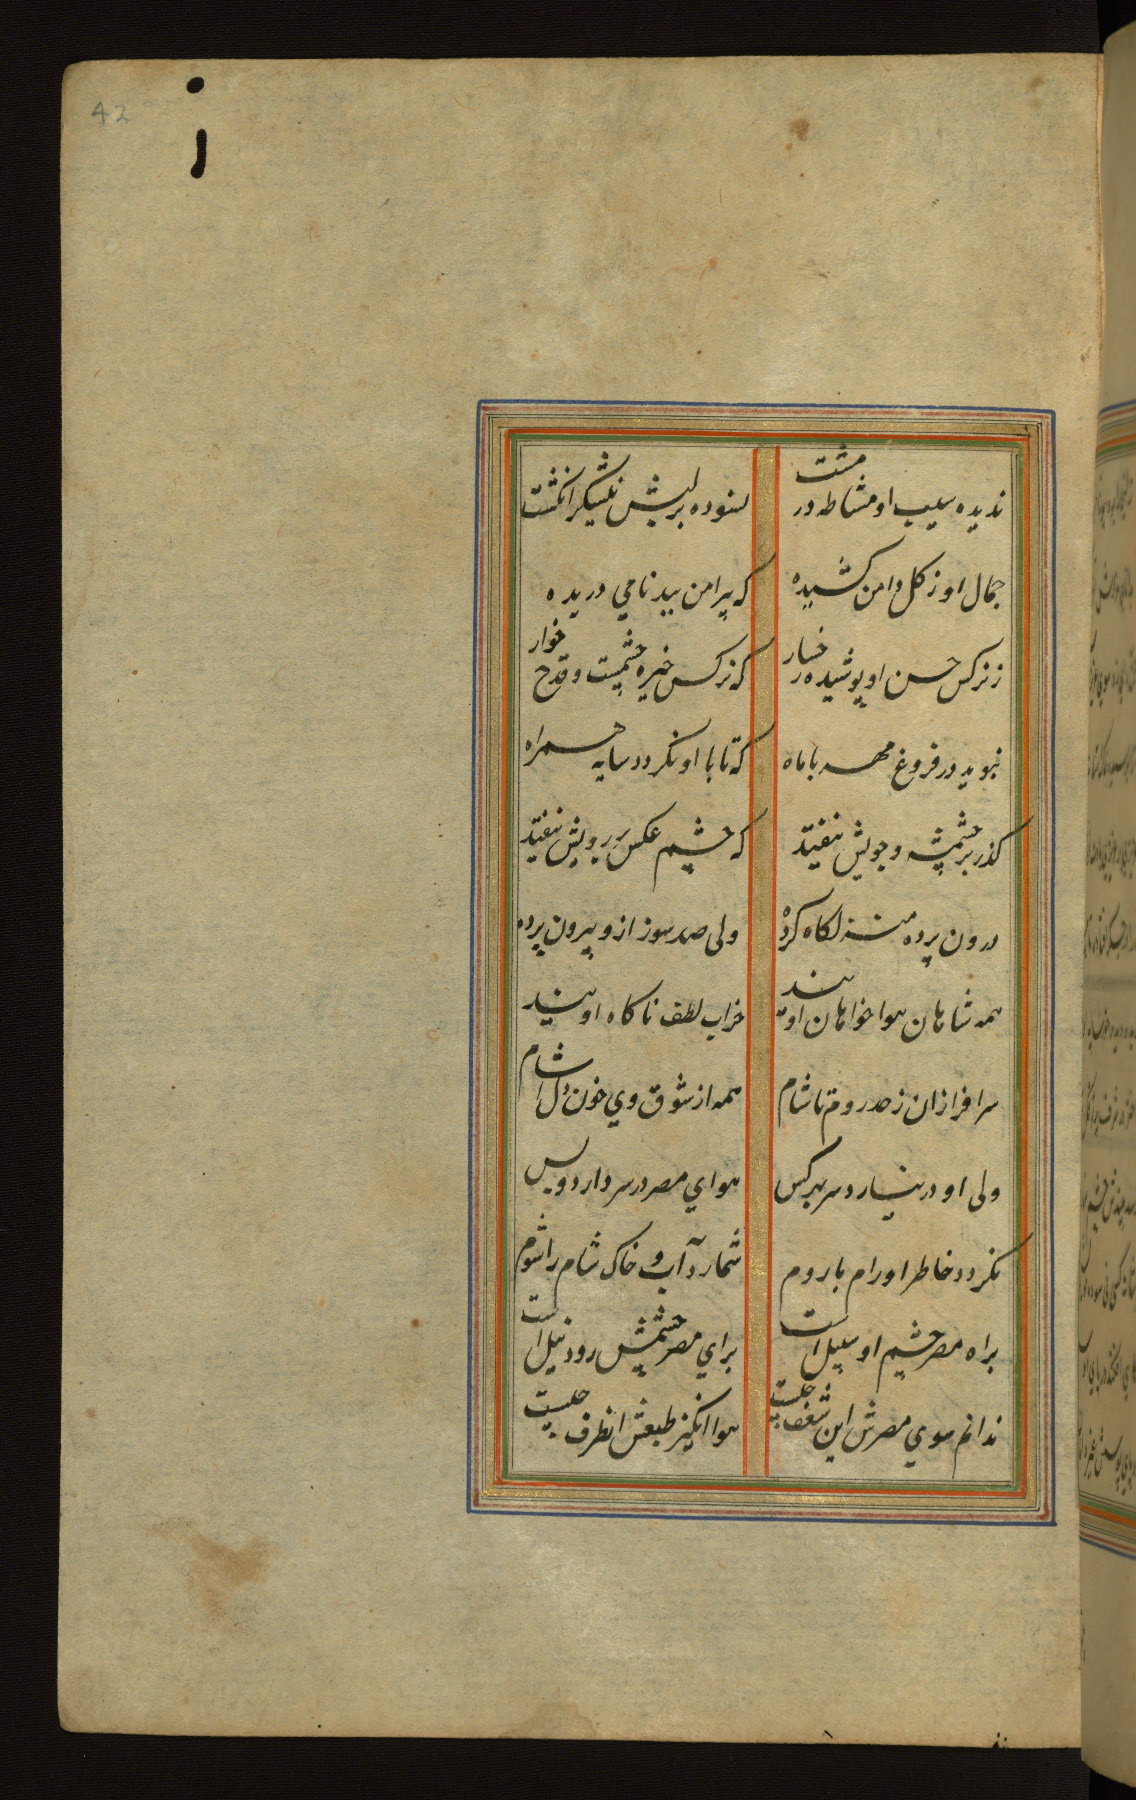 42
ندیده سیب او مشاطه در مشت
نسوده بر لبش نیشکر انگشت
جمال او ز کل دامن کشیده
که پیرامن ببدنامی دریده
ز نرکس حسن او پوشیده رخسار
که نرکس خیره چشمیست و قدح خوار
نپوید در فروغ مهر یا ماه
که تا با او نکردد سایه همراه
کذر بر چشمه و جویش نیفتد
که چشم عکس بر رویش نیفتد
درون پرده منزلکاه کرده
ولی صد سوز ازو بیرون پرده
همه شاهان هوا خواهان اویند
خراب لطف ناکاه اویند
سرافرازان ز حد روم تا شام
همه از شوق وی خون دل اشام
ولی او در نیارد سر بهر کس
هوای مصر در سر دارد و بس
نکردد خاطر او رام با روم
شمارد آب و خاک شام را شوم
براه مصر چشم او سبیل است
برای مصر چشمش رود نیل است
ندانم سوی مصرش این شغف چیست
هوا انکیز طبعش انطرف چیست